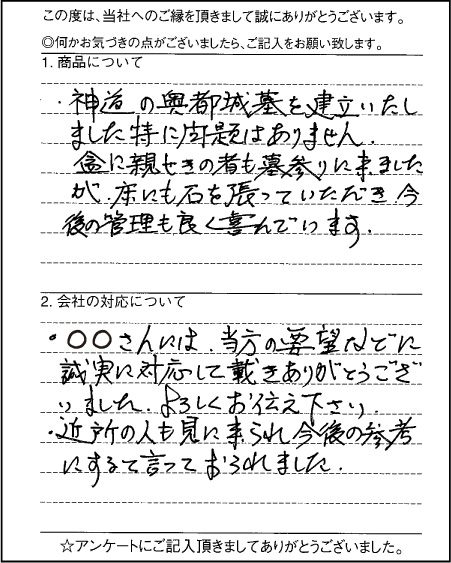 この度は、当社へのご縁を頂きまして誠にありがとうございます。
◎何かお気づきの点がございましたら、ご記入をお願い致します。
1. 商品について
・神道の奥都城墓を建立いたし
ました特に問題はありません。
盆に親せきの者も墓参りに来ました
が、床にも石を張っていただき今
後の管理も良く喜んでいます。
2. 会社の対応について
・○○さんには、当方の要望などに
誠実に対応して戴きありがとうござ
いました。よろしくお伝え下さい。
・近所の人も見に来られ今後の参考
にすると言っておられました。
☆アンケートにご記入頂きましてありがとうございました。